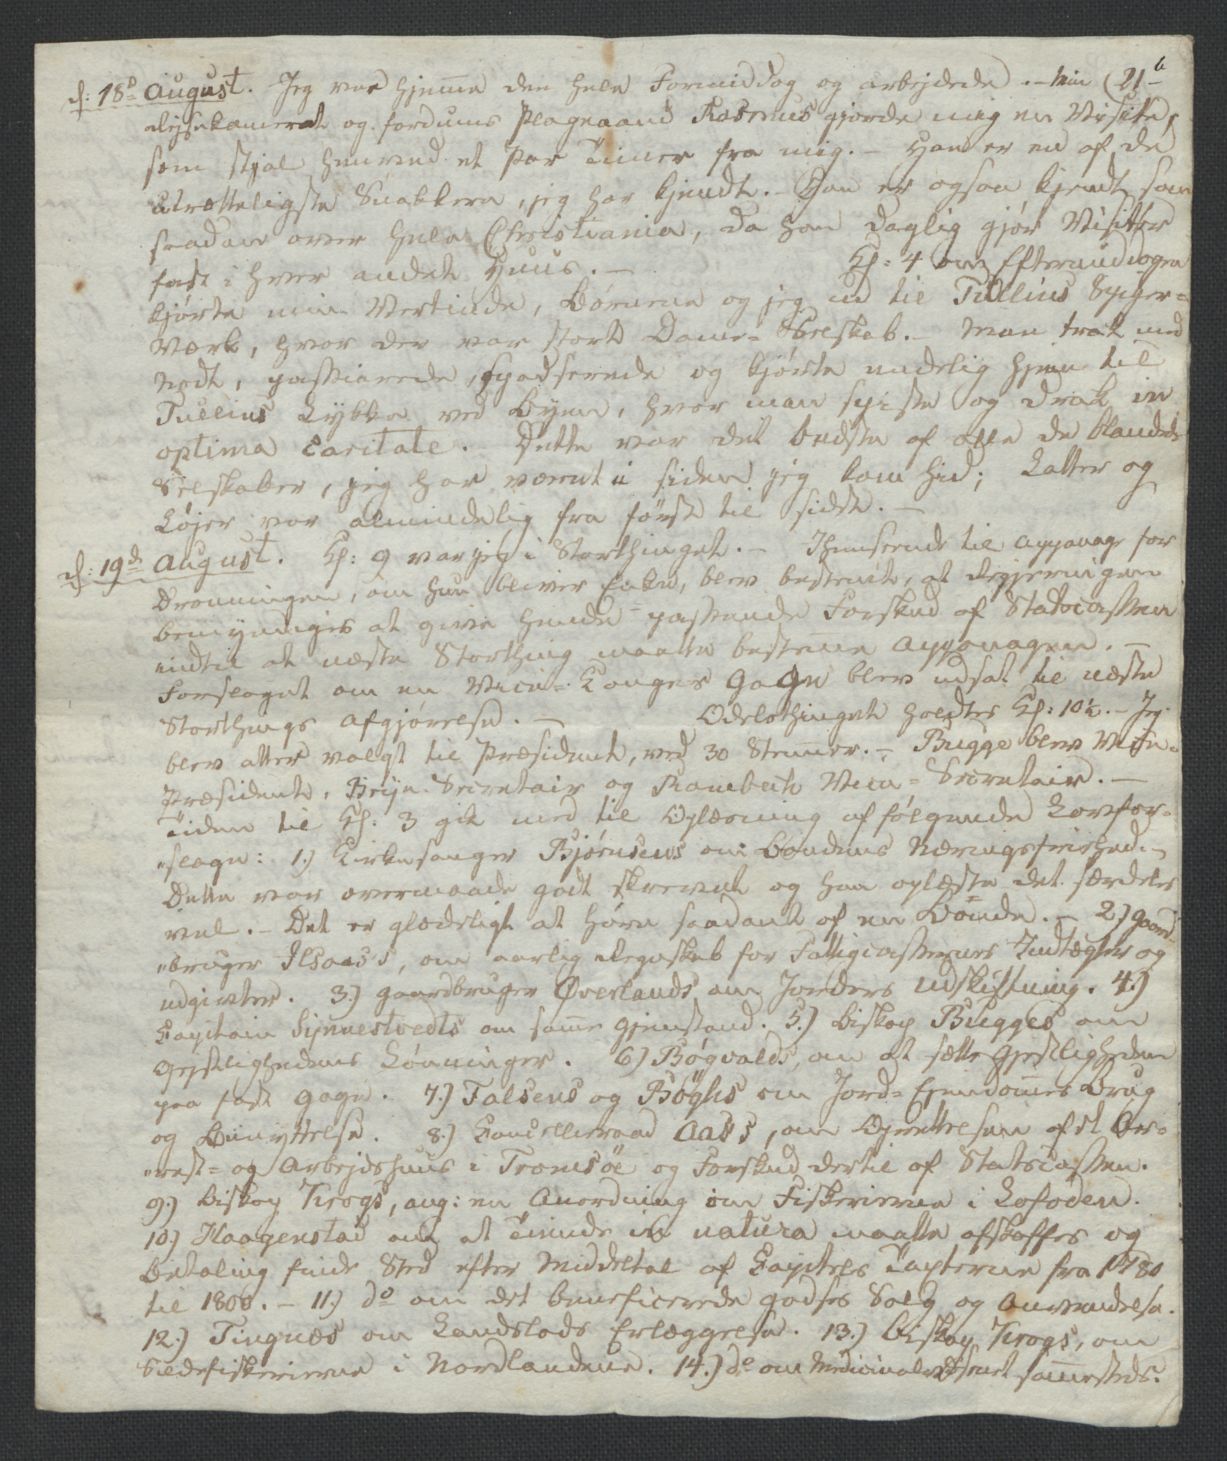 d: 18d August. Jeg var hjemme den hele Formiddag og arbejdede. — Min (21 6
Rejsekamerat og fordums Plageaand Rasmus gjorde mig en Visite,
som stjal henved et Par Timer fra mig. — Han er en af de
utrætteligste Snakkere, jeg har kjendt. — Han er ogsaa kjendt som
saadan over hele Christiania, da han daglig gjør Visitter
fast i hver andet Huus. — Kl: 4 om Eftermiddagen
kjørte min Vertinde, Børnene og jeg ud til Tullins Spiger=
Værk, hvor der var stort Dame=Selskab. — Man trak med
Nodt, passiarede, spadserede og kjørte endelig hjem til
Tullins Løkke ved Byen, hvor man spiste og drak in
optima caritate. Dette var det bedste af alle de blandede
Selskaber, jeg har været i siden jeg kom hid; Latter og
Løjer var almindelig fra først til sidst. —
d: 19de August. Kl: 9 var jeg i Storthinget. — Henseende til Appanage for
Dronningen, om hun bliver Enke, blev bestemt, at Regjeringen
bemyndiges at give hende passende Forskud af Statscassen
indtil at næste Storthing maatte bestemme Appanagen. —
Forslaget om en Vice=Konges Gage blev udsat til næste
Storthings Afgjørelse. — Odelsthinget holdtes Kl: 10½. — Jeg
blev atter valgt til Præsident, ved 30 Stemmer. — Bugge blev Vice=
Præsident, Bryn Secretair og Rambech Vice=Secretair. —
Tiden til Kl: 3 gik med til Oplæsning af følgende Lovfor=
=slage: 1.) Kirkesanger Bjørnsens om Bondens Næringsfrihed. —
Dette var overmaade godt skrevet og han oplæste det særdeles
vel. — Det er glædeligt at høre saadant af en Bonde. — 2) Gaard=
=bruger Ilsaas's, om aarlig Regnskab for Fattigcassernes Indtægter og
udgivter. 3.) Gaardbruger Øverlands om Jorders Udskiftning. 4.)
Capitain Synnestvedts om samme Gjenstand. 5.) Biskop Bugges om
Gejstlighedens Lønninger. 6) Bøgvalds, om at sætte Gejstligheden
paa fast Gage. 7.) Falsens og Bøghs om Jord=Ejendommes Brug
og Benyttelse. 8.) Cancelliraad Aas's, om Oprettelsen af et Ar=
=rest= og Arbejdshuus i Tromsøe og Forskud dertil af Statscassen.
9.) Biskop Krogs, ang: en Anordning om Fiskerierne i Lofoden.
10.) Haagenstad om at Tiende in natura maatte afskaffes og
Betaling finde Sted efter Middeltal af Capitels Taxterne fra 1780
til 1800. — 11.) do om det beneficerede Godses Salg og Anvendelse.
12.) Tingnæs om Landslods Erlæggelse. 13.) Biskop Krogs, om
Sildefiskerierne i Nordlandene. 14.) do om Medicinalvæsenet sammesteds.